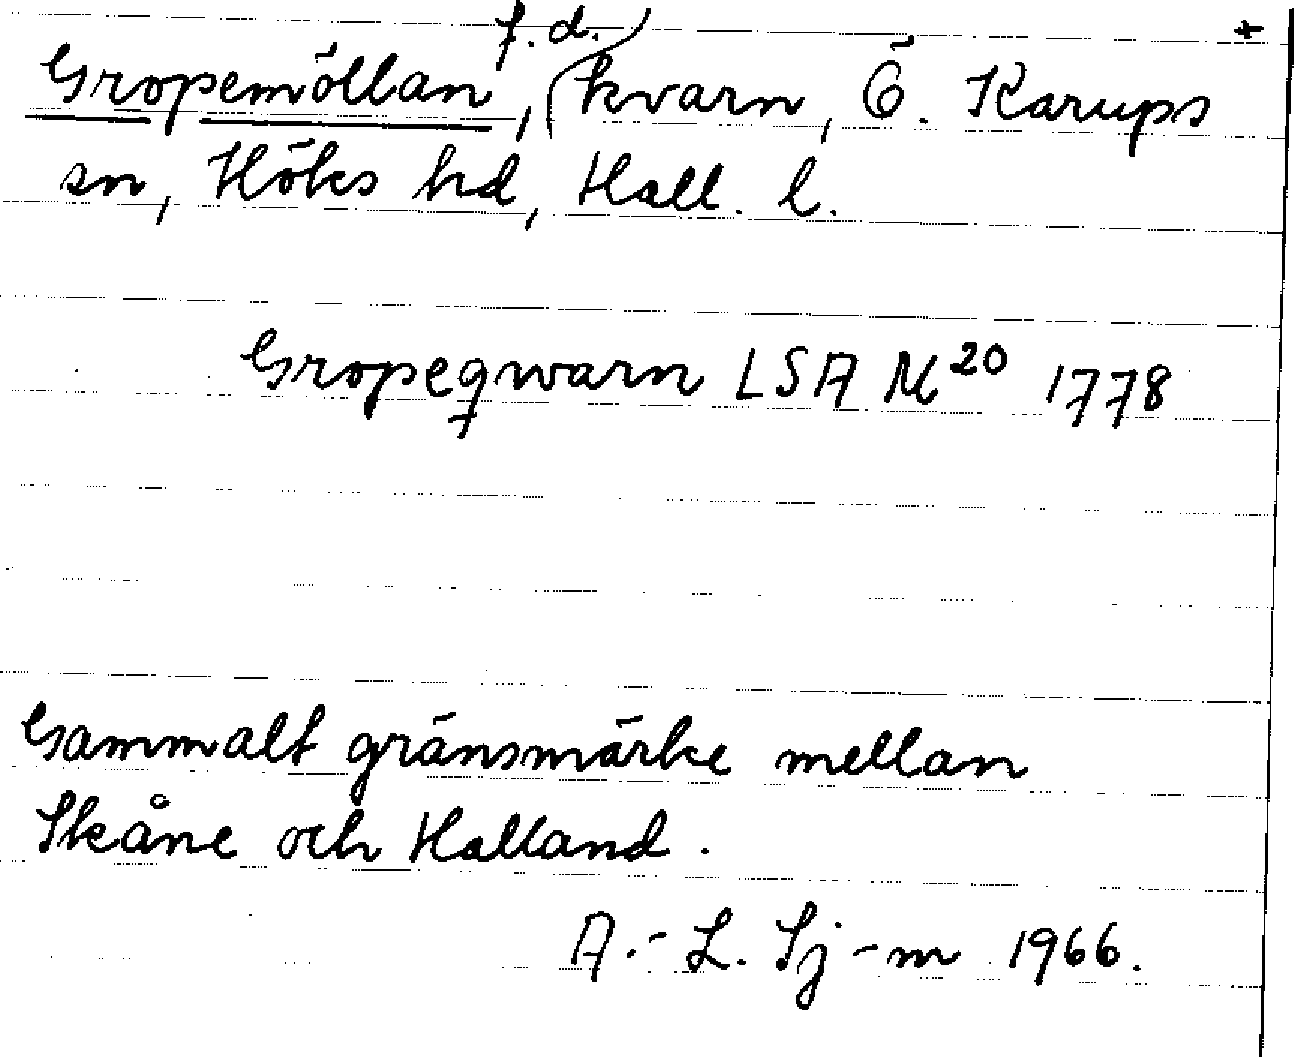 Gropemöllan, f.d. kvarn, Ö. Karups +
sn, Höks hd, Hall. l.
Gropeqwarn LSA M 20 1778
Gammalt gränsmärke mellan
Skåne och Halland.
A.-L. Sj-m 1966.